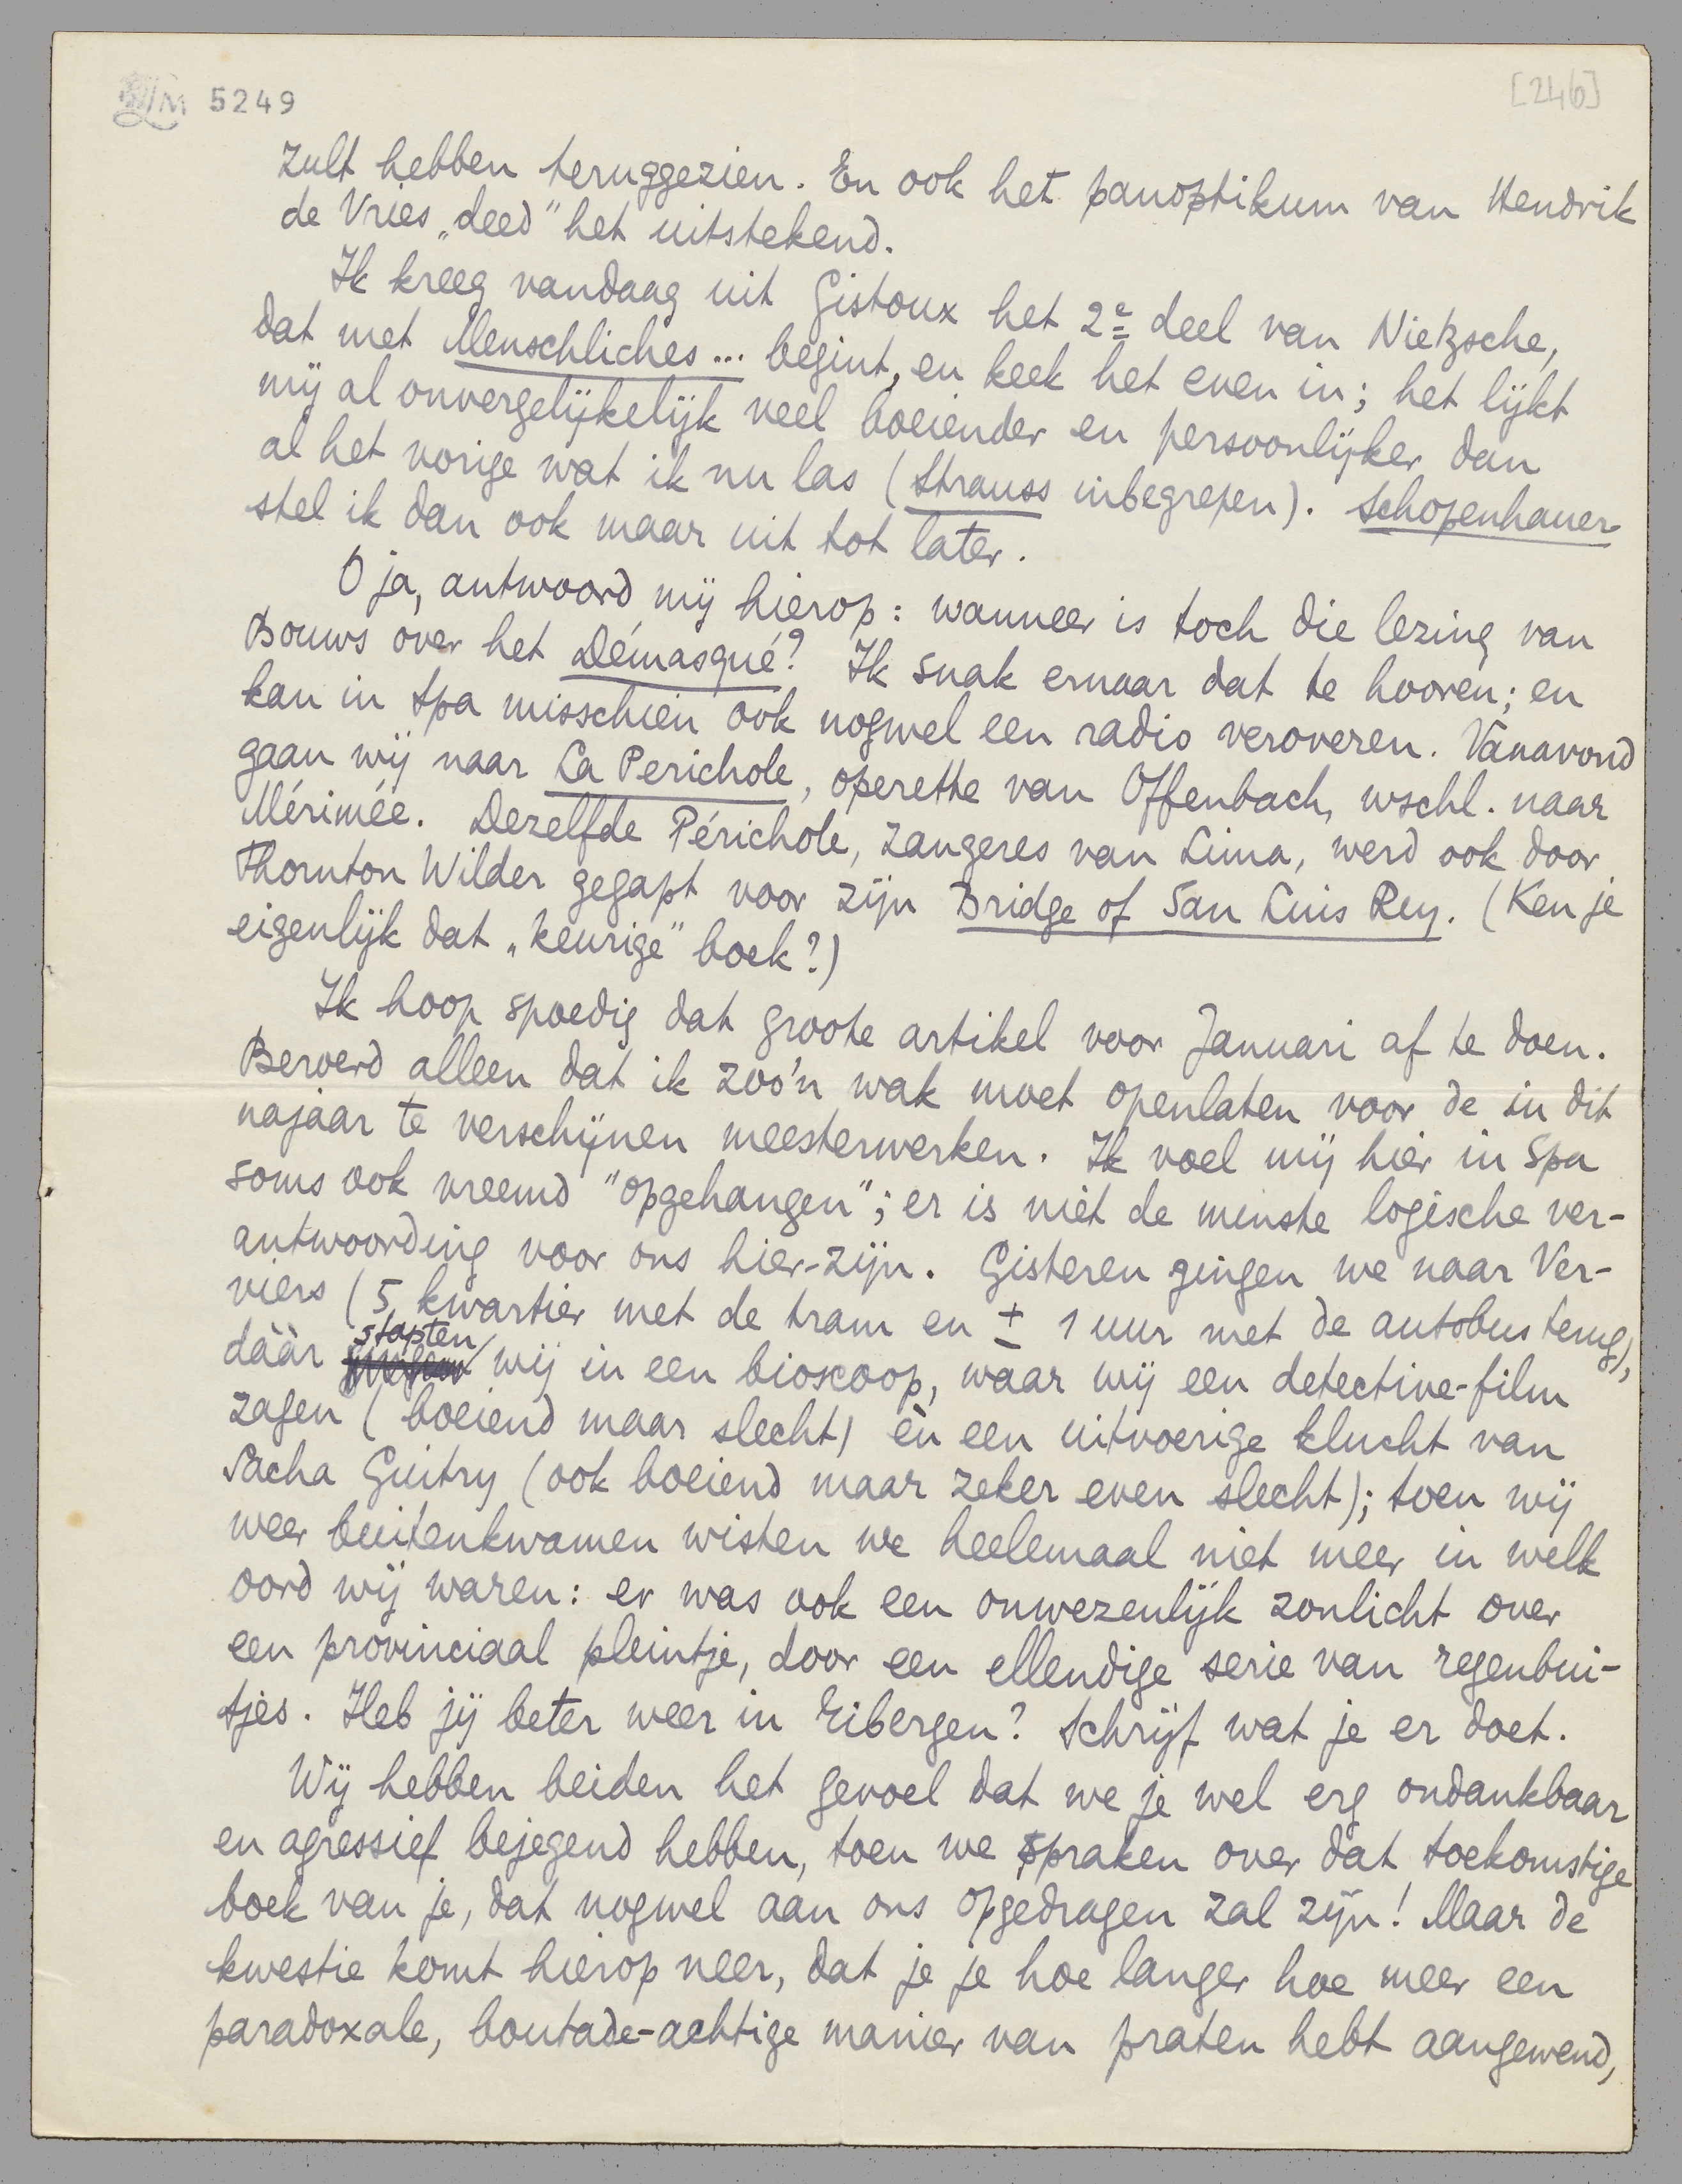 5249
[246]
zult hebben teruggezien. En ook het panoptikum van Hendrik
de Vries „deed" het uitstekend.
Ik kreeg vandaag uit Gistoux het 2e deel van Nietzsche,
dat met Menschliches... begint, en keek het even in; het lijkt
mij al onvergelijkelijk veel boeiender en persoonlijker dan
al het vorige wat ik nu las (Strauss inbegrepen). Schopenhauer
stel ik dan ook maar uit tot later.
O ja, antwoord mij hierop: wanneer is toch die lezing van
Bouws over het Démasqué? Ik snak ernaar dat te hooren; en
kan in Spa misschien ook nogwel een radio veroveren. Vanavond
gaan wij naar La Perichole, operette van Offenbach, wschl. naar
Mérimée. Dezelfde Périchole, zangeres van Lima, werd ook door
Thornton Wilder gegapt voor zijn Bridge of San Luis Rey. (Ken je
eigenlijk dat „keurige" boek?)
Ik hoop spoedig dat groote artikel voor Januari af te doen.
Beroerd alleen dat ik zoo'n wak moet openlaten voor de in dit
najaar te verschijnen meesterwerken. Ik voel mij hier in Spa
soms ook vreemd "opgehangen"; er is niet de minste logische ver-
antwoording voor ons hier-zijn. Gisteren gingen we naar Ver-
viers (5 kwartier met de tram en ± 1 uur met de autobus terug),
dáár stapten wij in een bioscoop, waar wij een detective-film
zagen (boeiend maar slecht) èn een uitvoerige klucht van
Sacha Guitry (ook boeiend maar zeker even slecht); toen wij
weer buitenkwamen wisten we heelemaal niet meer in welk
oord wij waren: er was ook een onwezenlijk zonlicht over
een provinciaal pleintje, door een ellendige serie van regenbui-
tjes. Heb jij beter weer in Eibergen? Schrijf wat je er doet.
Wij hebben beiden het gevoel dat we je wel erg ondankbaar
en agressief bejegend hebben, toen we spraken over dat toekomstige
boek van je, dat nogwel aan ons opgedragen zal zijn! Maar de
kwestie komt hierop neer, dat je je hoe langer hoe meer een
paradoxale, boutade-achtige manier van praten hebt aangewend,